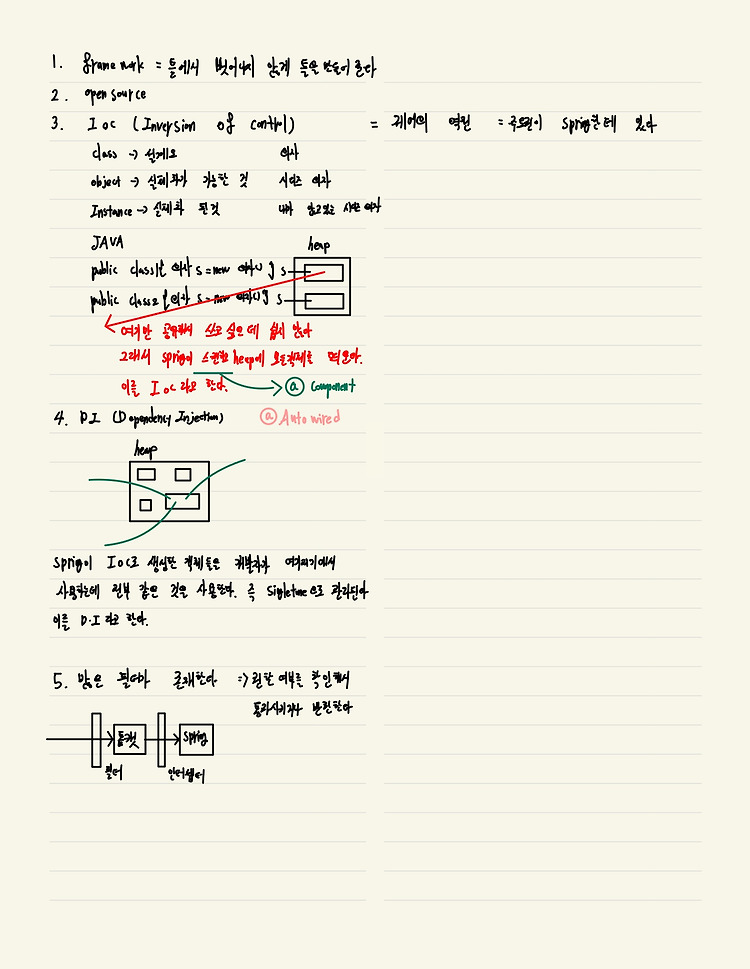 1. framework = 틀에서 벗어나지 않게 틀을 만들어 준다
2. open source
3. IoC (Inversion of control) = 제어의 역전 = 주도권이 Spring한테 있다
class -> 설계도 의자
object -> 실체화가 가능한 것 시디즈 의자
Instance -> 실체화 된것 내가 앉고있는 시디즈 의자
JAVA heap
public class1{ 의자 s = new 의자() } s
public class2 { 의자 s = new 의자() } s
여기만 공유해서 쓰고 싶은데 쉽지 않아
그래서 spring이 스캔한 heap에 모든객체를 띄운다.
이를 IoC 라고 한다. @ Component
4. DI (Dependency Injection) @ Autowired
heap
spring이 IoC로 생성한 객체들은 개발자가 여기저기에서
사용하는데 전부 같은 것을 사용한다. 즉 Singletone으로 관리된다
이를 D.I 라고 한다.
5. 많은 필터가 존재한다 => 권한 여부를 확인해서
통과시키거나 반환한다
톰캣 spring
필터 인터셉터